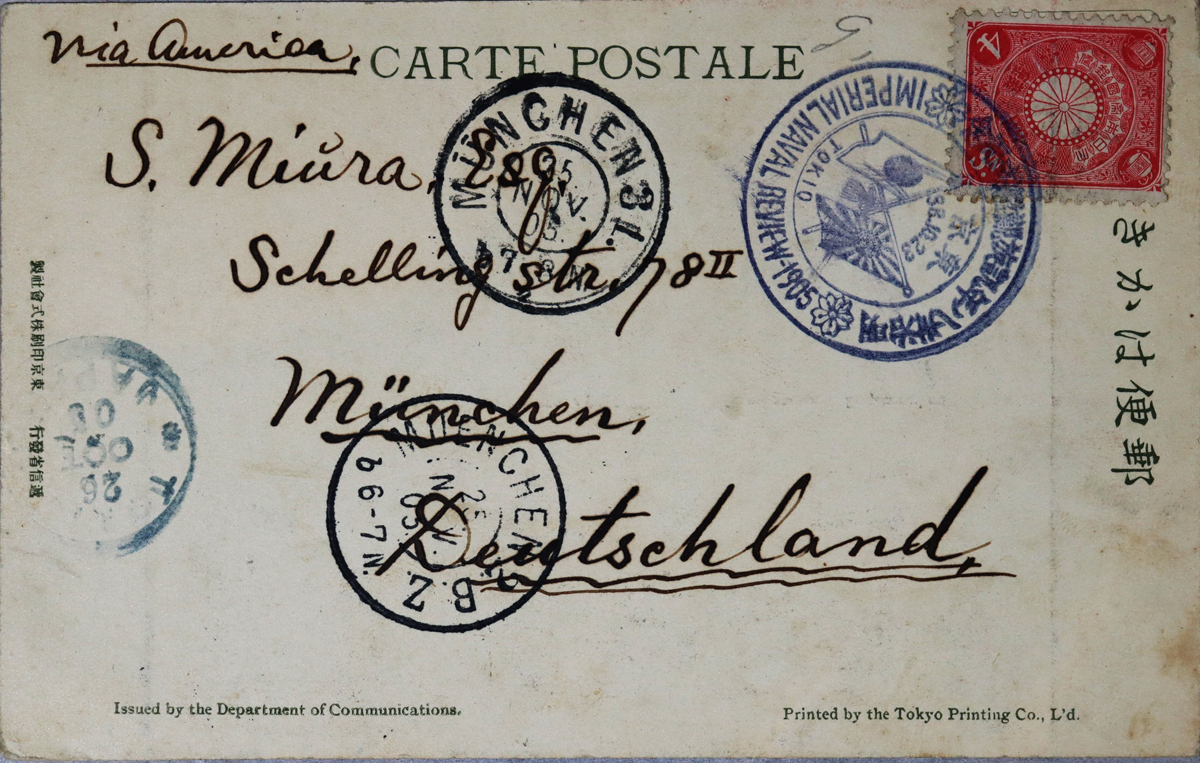 via America,
CARTE POSTALE
S. Miura, Esq.
Schelling str. 78 II
München,
Deutschland,
MÜNCHEN 31.
25
NOV.
05
MUENCHEN
NOV.
05
6-7 N.
B.Z.
IMPERIAL NAVAL REVIEW-1905
TOKIO
東京
38.10.23
4
26
OCT
05
きかは便郵
製社會式株刷印京東 行發省信遞
Issued by the Department of Communications.
Printed by the Tokyo Printing Co., L'd.